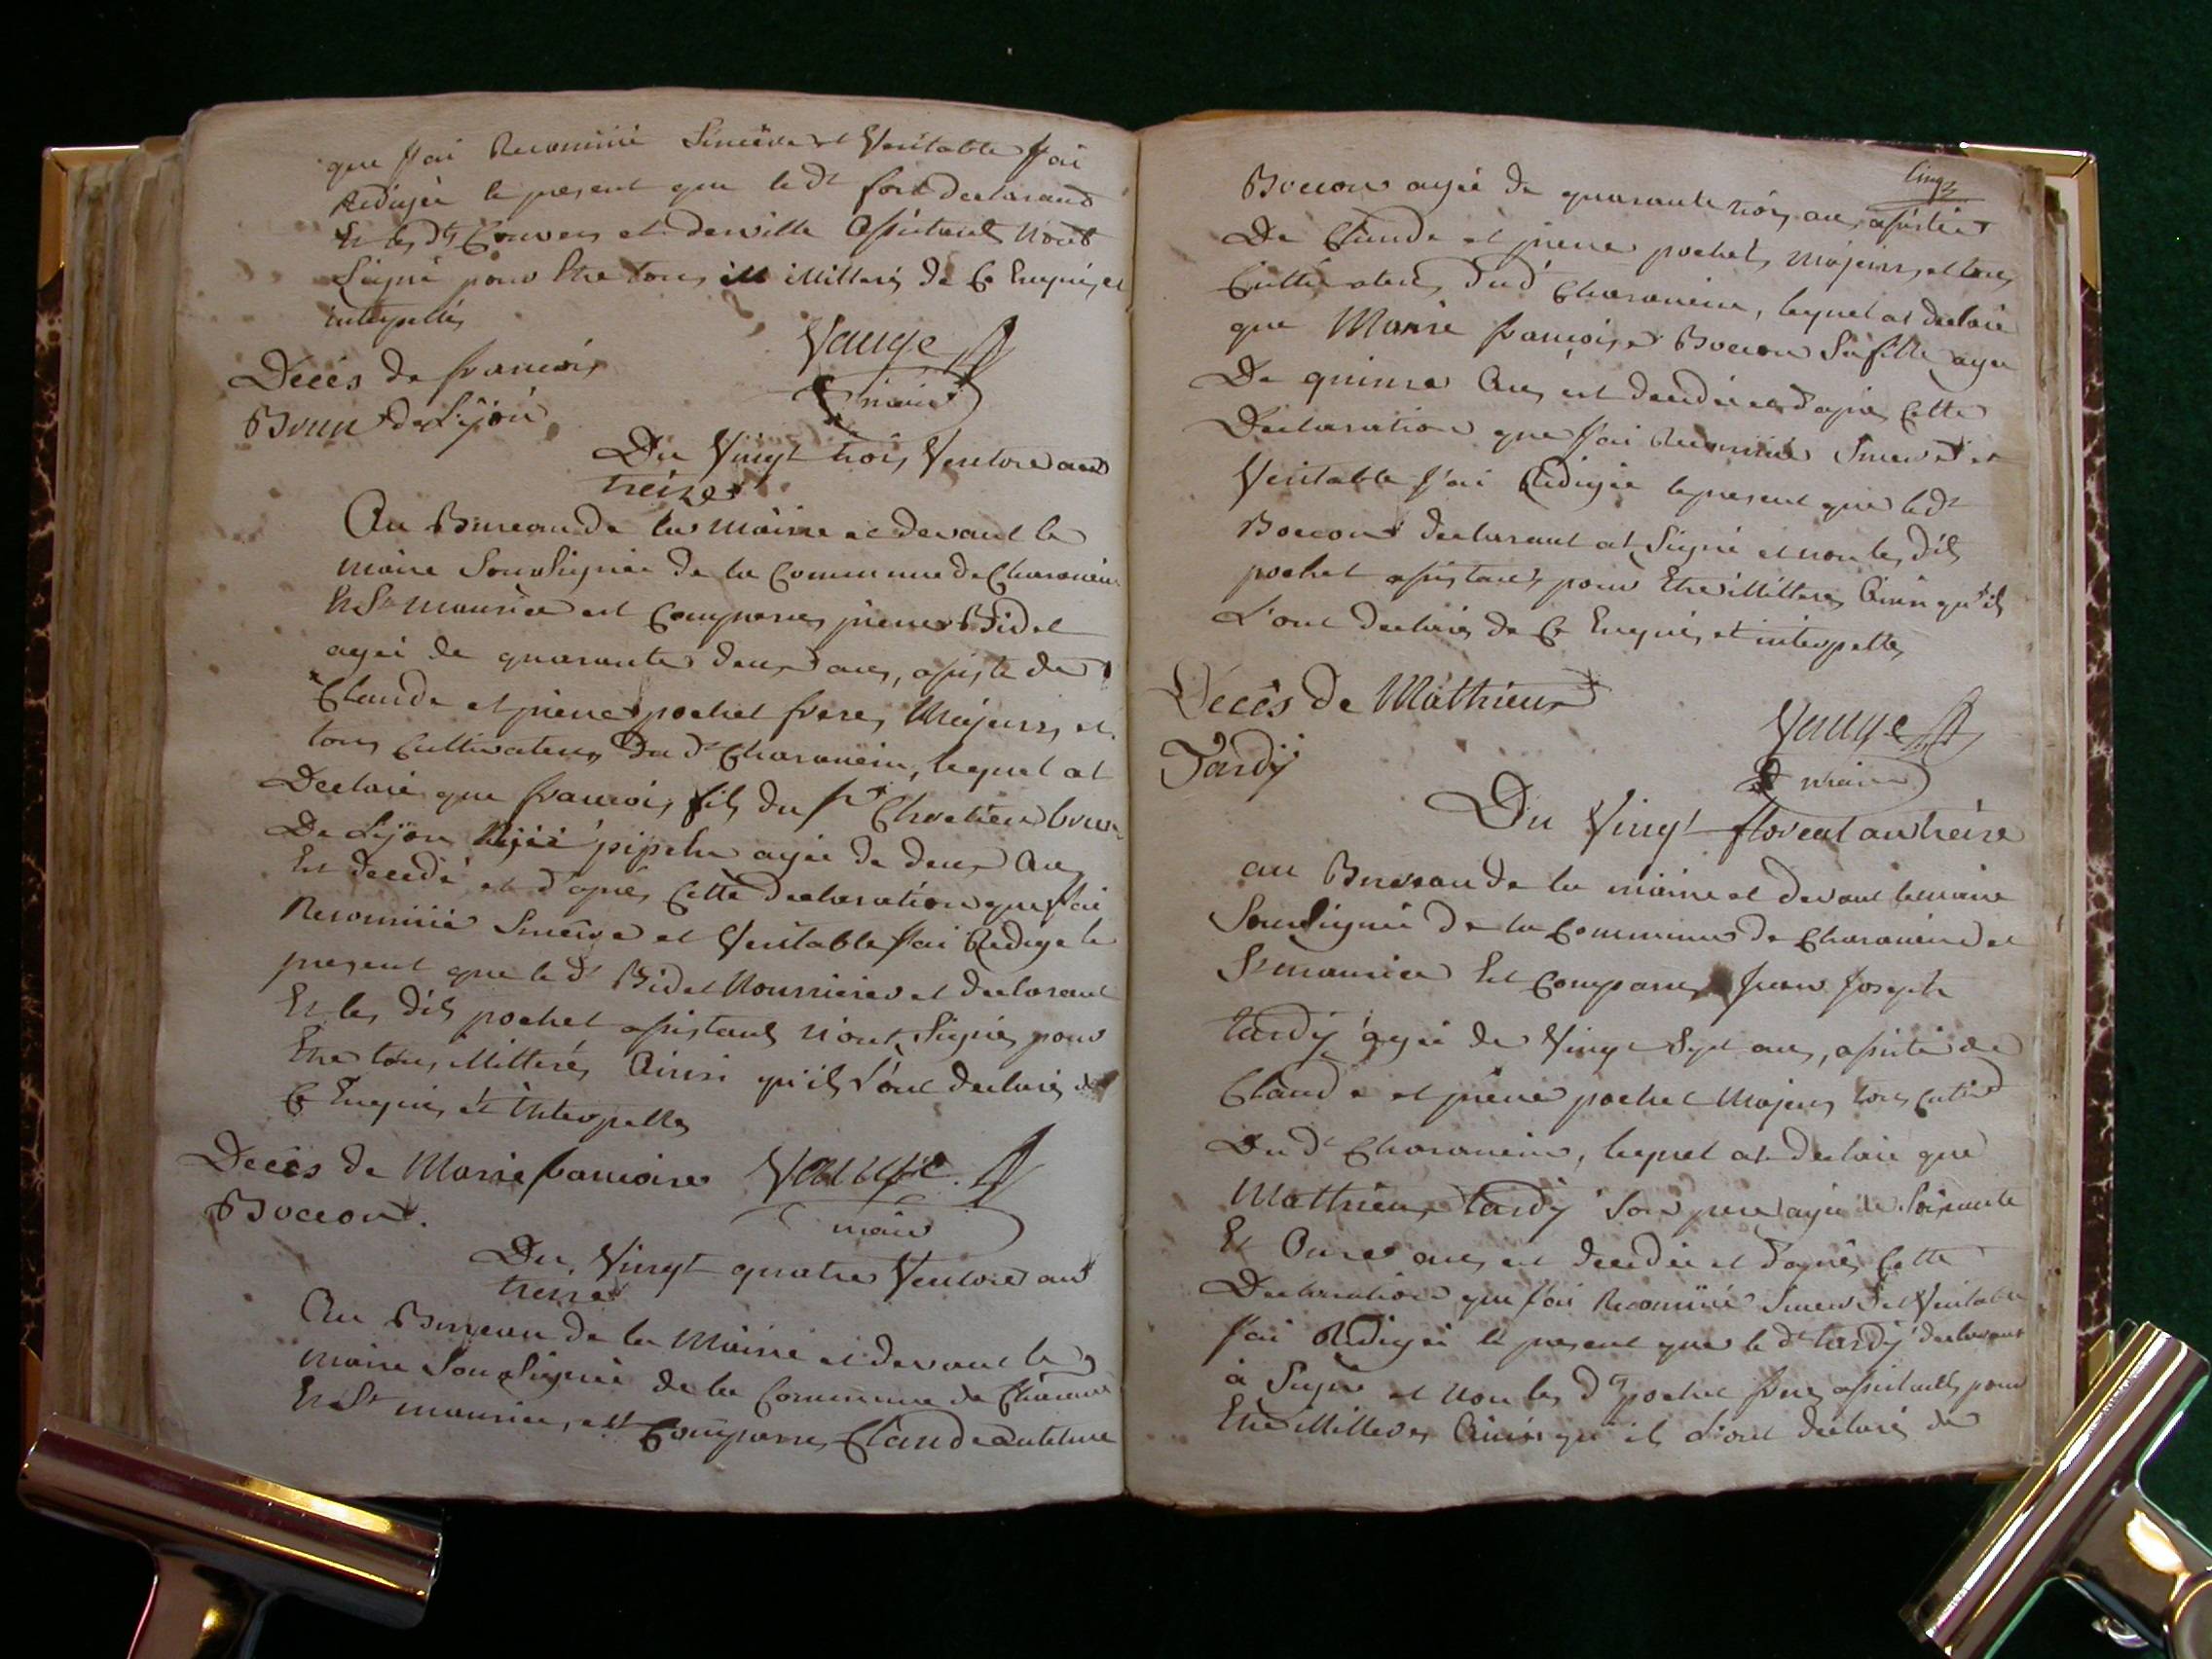 que j'ai Reconnüe Sincère et Veritable j'ai
Redigée le present que led.t declarans
Et les d.ts et assistants n'ont
Signé pour Etre tous illitteré de Ce Enquis et
interpellés
Vauge
maire
Décés de francois
Brun de Lÿon
Du Vingt trois Ventose an
treize
Au Bureau de la Mairie et devant le
maire Sousignée de la Commune de Charancin
Et St maurice est Comparus pierre Bidet
agée de quarante deux ans, assisté de
Claude et pierre pochet frere, Majeurs, et
tous Cultivateurs Du d.t Charancin, lequel at
Declaré que francois fils du Sr Chretien brun
De Lÿon agée de deux ans
Est decedé et d'apres Cette declaration que j'ai
Reconnüe Sincère et Veritable j'ai Redigé le
present que le d.t Bidet Nourricier et declarant
Et les dits pochet assistants n'ont Signés pour
Etre tous illitteré, Ainsi qu'ils L'ont declaré de
Ce Enquis et interpellés
Décès de Marie francoise
Boccon.
Vauge
maire
Du Vingt quatre Ventose an
treize
Au Bureau de la Mairie et devant le
maire Sousignée de la Commune de Charancin
Et St maurice, est Comparus, Claude antelme
cinq
Boccon agée de quarante trois ans, assistée
De Claude et pierre pochet, majeurs, et tous
Cultivateurs Dud.t Charancin, lequel at declaré
que Marie francoise Boccon Sa fille agée
De quinze Ans est decedée et d'apres Cette
Declaration que j'ai Reconnüe Sincere et
Veritable j'ai Redigée le present que led.t
Boccon declarant at Signé et non les dits
pochet assistants pour Etre illitteré Ainsi qu'ils
L'ont declaré de Ce Enquis et interpellés
Vauge
maire
Décès de Mathieu
Tardÿ
Du Vingt floreal an treize
au Bureau de la mairie et devant le maire
Sousignée de la Commune de Charancin et
St maurice Est Comparus Jean Joseph
tardÿ agée de Vingt Sept ans, assisté de
Claude et pierre pochet Majeurs tous
Du d.t Charancin, lequel at declaré que
Mathieu tardÿ Son pere agée de Soixante
Et Onze ans est decedée et d'apres Cette
Declaration que j'ai Reconnüe Sincere et Veritable
j'ai Redigée le present que le d.t tardÿ declarant
à Signé et non les d.ts pochet frere assistants pour
Etre illitteré Ainsi qu'ils L'ont declaré de